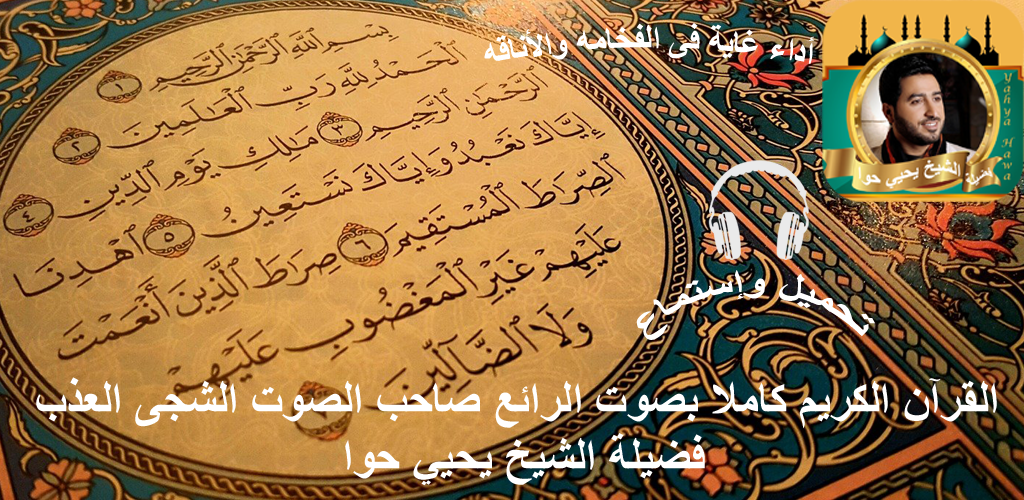 أداء غاية في الفخامه والأناقه
Yahya Hawa
فضيلة الشيخ يحيي حوا
بِسْمِ ٱللَّهِ ٱلرَّحْمَٰنِ ٱلرَّحِيمِ ١
ٱلْحَمْدُ لِلَّهِ رَبِّ ٱلْعَٰلَمِينَ ٢
ٱلرَّحْمَٰنِ ٱلرَّحِيمِ ٣ مَٰلِكِ يَوْمِ ٱلدِّينِ ٤
إِيَّاكَ نَعْبُدُ وَإِيَّاكَ نَسْتَعِينُ ٥ ٱهْدِنَا
ٱلصِّرَاطَ ٱلْمُسْتَقِيمَ ٦ صِرَاطَ ٱلَّذِينَ أَنْعَمْتَ
عَلَيْهِمْ غَيْرِ ٱلْمَغْضُوبِ عَلَيْهِمْ
وَلَا ٱلضَّآلِّينَ
تحميل وإستماع
القرآن الكريم كاملا بصوت الرائع صاحب الصوت الشجى العذب
فضيلة الشيخ يحيي حوا